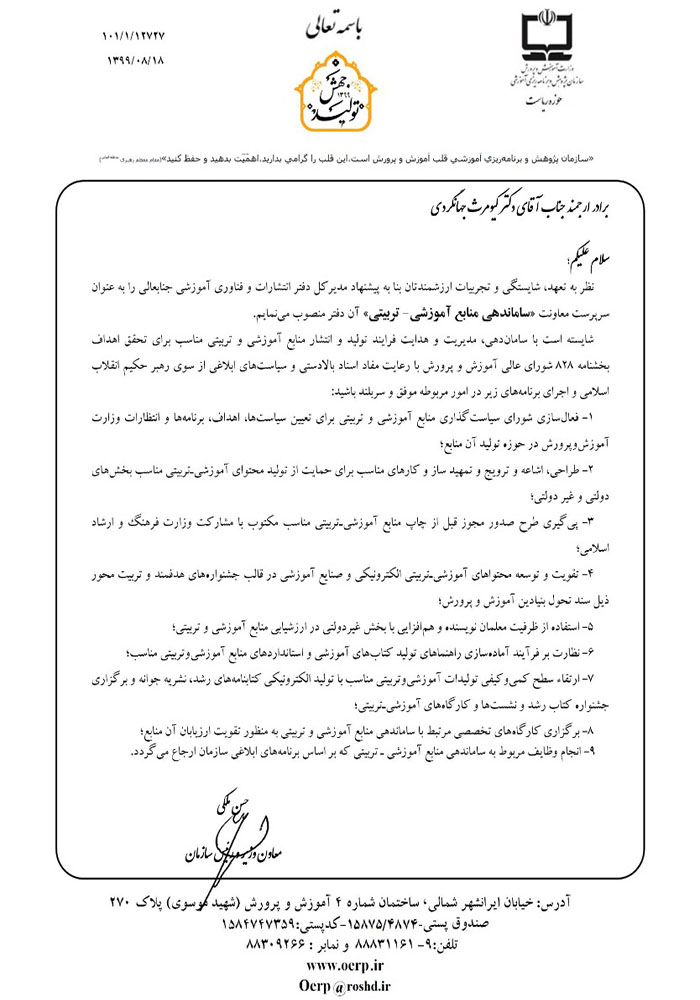 باسمه تعالی
۱۰۱/۱/۱۲۷۲۷
۱۳۹۹/۰۸/۱۸
جهش
۱۳۹۹
تولید
وزارت آموزش و پرورش
سازمان پژوهش و برنامه‌ریزی آموزشی
حوزه ریاست
«سازمان پژوهش و برنامه‌ریزي آموزشي قلب آموزش و پرورش است.این قلب را گرامي بدارید.اهمّیّت بدهید و حفظ کنید»(مقام معظم رهبری
برادر ارجمند جناب آقای دکتر کیومرث جهانگردی
سلام علیکم؛
نظر به تعهد، شایستگی و تجربیات ارزشمندتان بنا به پیشنهاد مدیرکل دفتر انتشارات و فناوری آموزشی جنابعالی را به عنوان
سرپرست معاونت «ساماندهی منابع آموزشی- تربیتی» آن دفتر منصوب می‌نمایم.
شایسته است با سامان‌دهی، مدیریت و هدایت فرایند تولید و انتشار منابع آموزشی و تربیتی مناسب برای تحقق اهداف
بخشنامه ۸۲۸ شورای عالی آموزش و پرورش با رعایت مفاد اسناد بالادستی و سیاست‌های ابلاغی از سوی رهبر حکیم انقلاب
اسلامی و اجرای برنامه‌های زیر در امور مربوطه موفق و سربلند باشید:
۱- فعال‌سازی شورای سیاست‌گذاری منابع آموزشی و تربیتی برای تعیین سیاست‌ها، اهداف، برنامه‌ها و انتظارات وزارت
آموزش‌وپرورش در حوزه تولید آن منابع؛
۲- طراحی، اشاعه و ترویج و تمهید ساز و کارهای مناسب برای حمایت از تولید محتوای آموزشی‌ـ‌تربیتی مناسب بخش‌های
دولتی و غیر دولتی؛
۳- پی‌گیری طرح صدور مجوز قبل از چاپ منابع آموزشی‌ـ‌تربیتی مناسب مکتوب با مشارکت وزارت فرهنگ و ارشاد
اسلامی؛
۴- تقویت و توسعه محتواهای آموزشی‌ـ‌تربیتی الکترونیکی و صنایع آموزشی در قالب جشنواره‌های هدفمند و تربیت محور
ذیل سند تحول بنیادین آموزش و پرورش؛
۵- استفاده از ظرفیت معلمان نویسنده و هم‌افزایی با بخش غیردولتی در ارزشیابی منابع آموزشی و تربیتی؛
۶- نظارت بر فرآیند آماده‌سازی راهنماهای تولید کتاب‌های آموزشی و استانداردهای منابع آموزشی‌وتربیتی مناسب؛
۷- ارتقاء سطح کمی‌وکیفی تولیدات آموزشی‌وتربیتی مناسب با تولید الکترونیکی کتابنامه‌های رشد، نشریه جوانه و برگزاری
جشنواره کتاب رشد و نشست‌ها و کارگاه‌های آموزشی‌ـ‌تربیتی؛
۸- برگزاری کارگاه‌های تخصصی مرتبط با ساماندهی منابع آموزشی و تربیتی به منظور تقویت ارزیابان آن منابع؛
۹- انجام وظایف مربوط به ساماندهی منابع آموزشی ـ تربیتی که بر اساس برنامه‌های ابلاغی سازمان ارجاع می‌گردد.
حسن ملکی
معاون وزیر و رئیس سازمان
آدرس: خیابان ایرانشهر شمالی، ساختمان شماره ۴ آموزش و پرورش (شهید موسوی) پلاک ۲۷۰
صندوق پستی-۱۵۸۷۵/۴۸۷۴-کدپستی:۱۵۸۴۷۴۷۳۵۹
تلفن:۹- ۸۸۸۳۱۱۶۱ و نمابر : ۸۸۳۰۹۲۶۶
www.oerp.ir
Oerp @roshd.ir